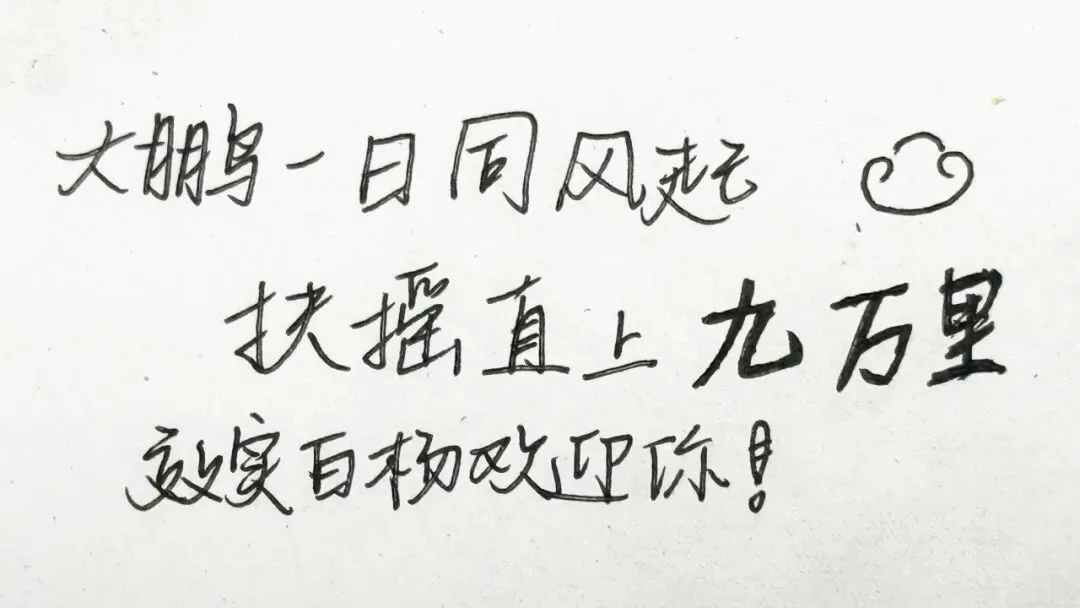 大鹏一日同风起
扶摇直上九万里
效实百杨欢迎你！